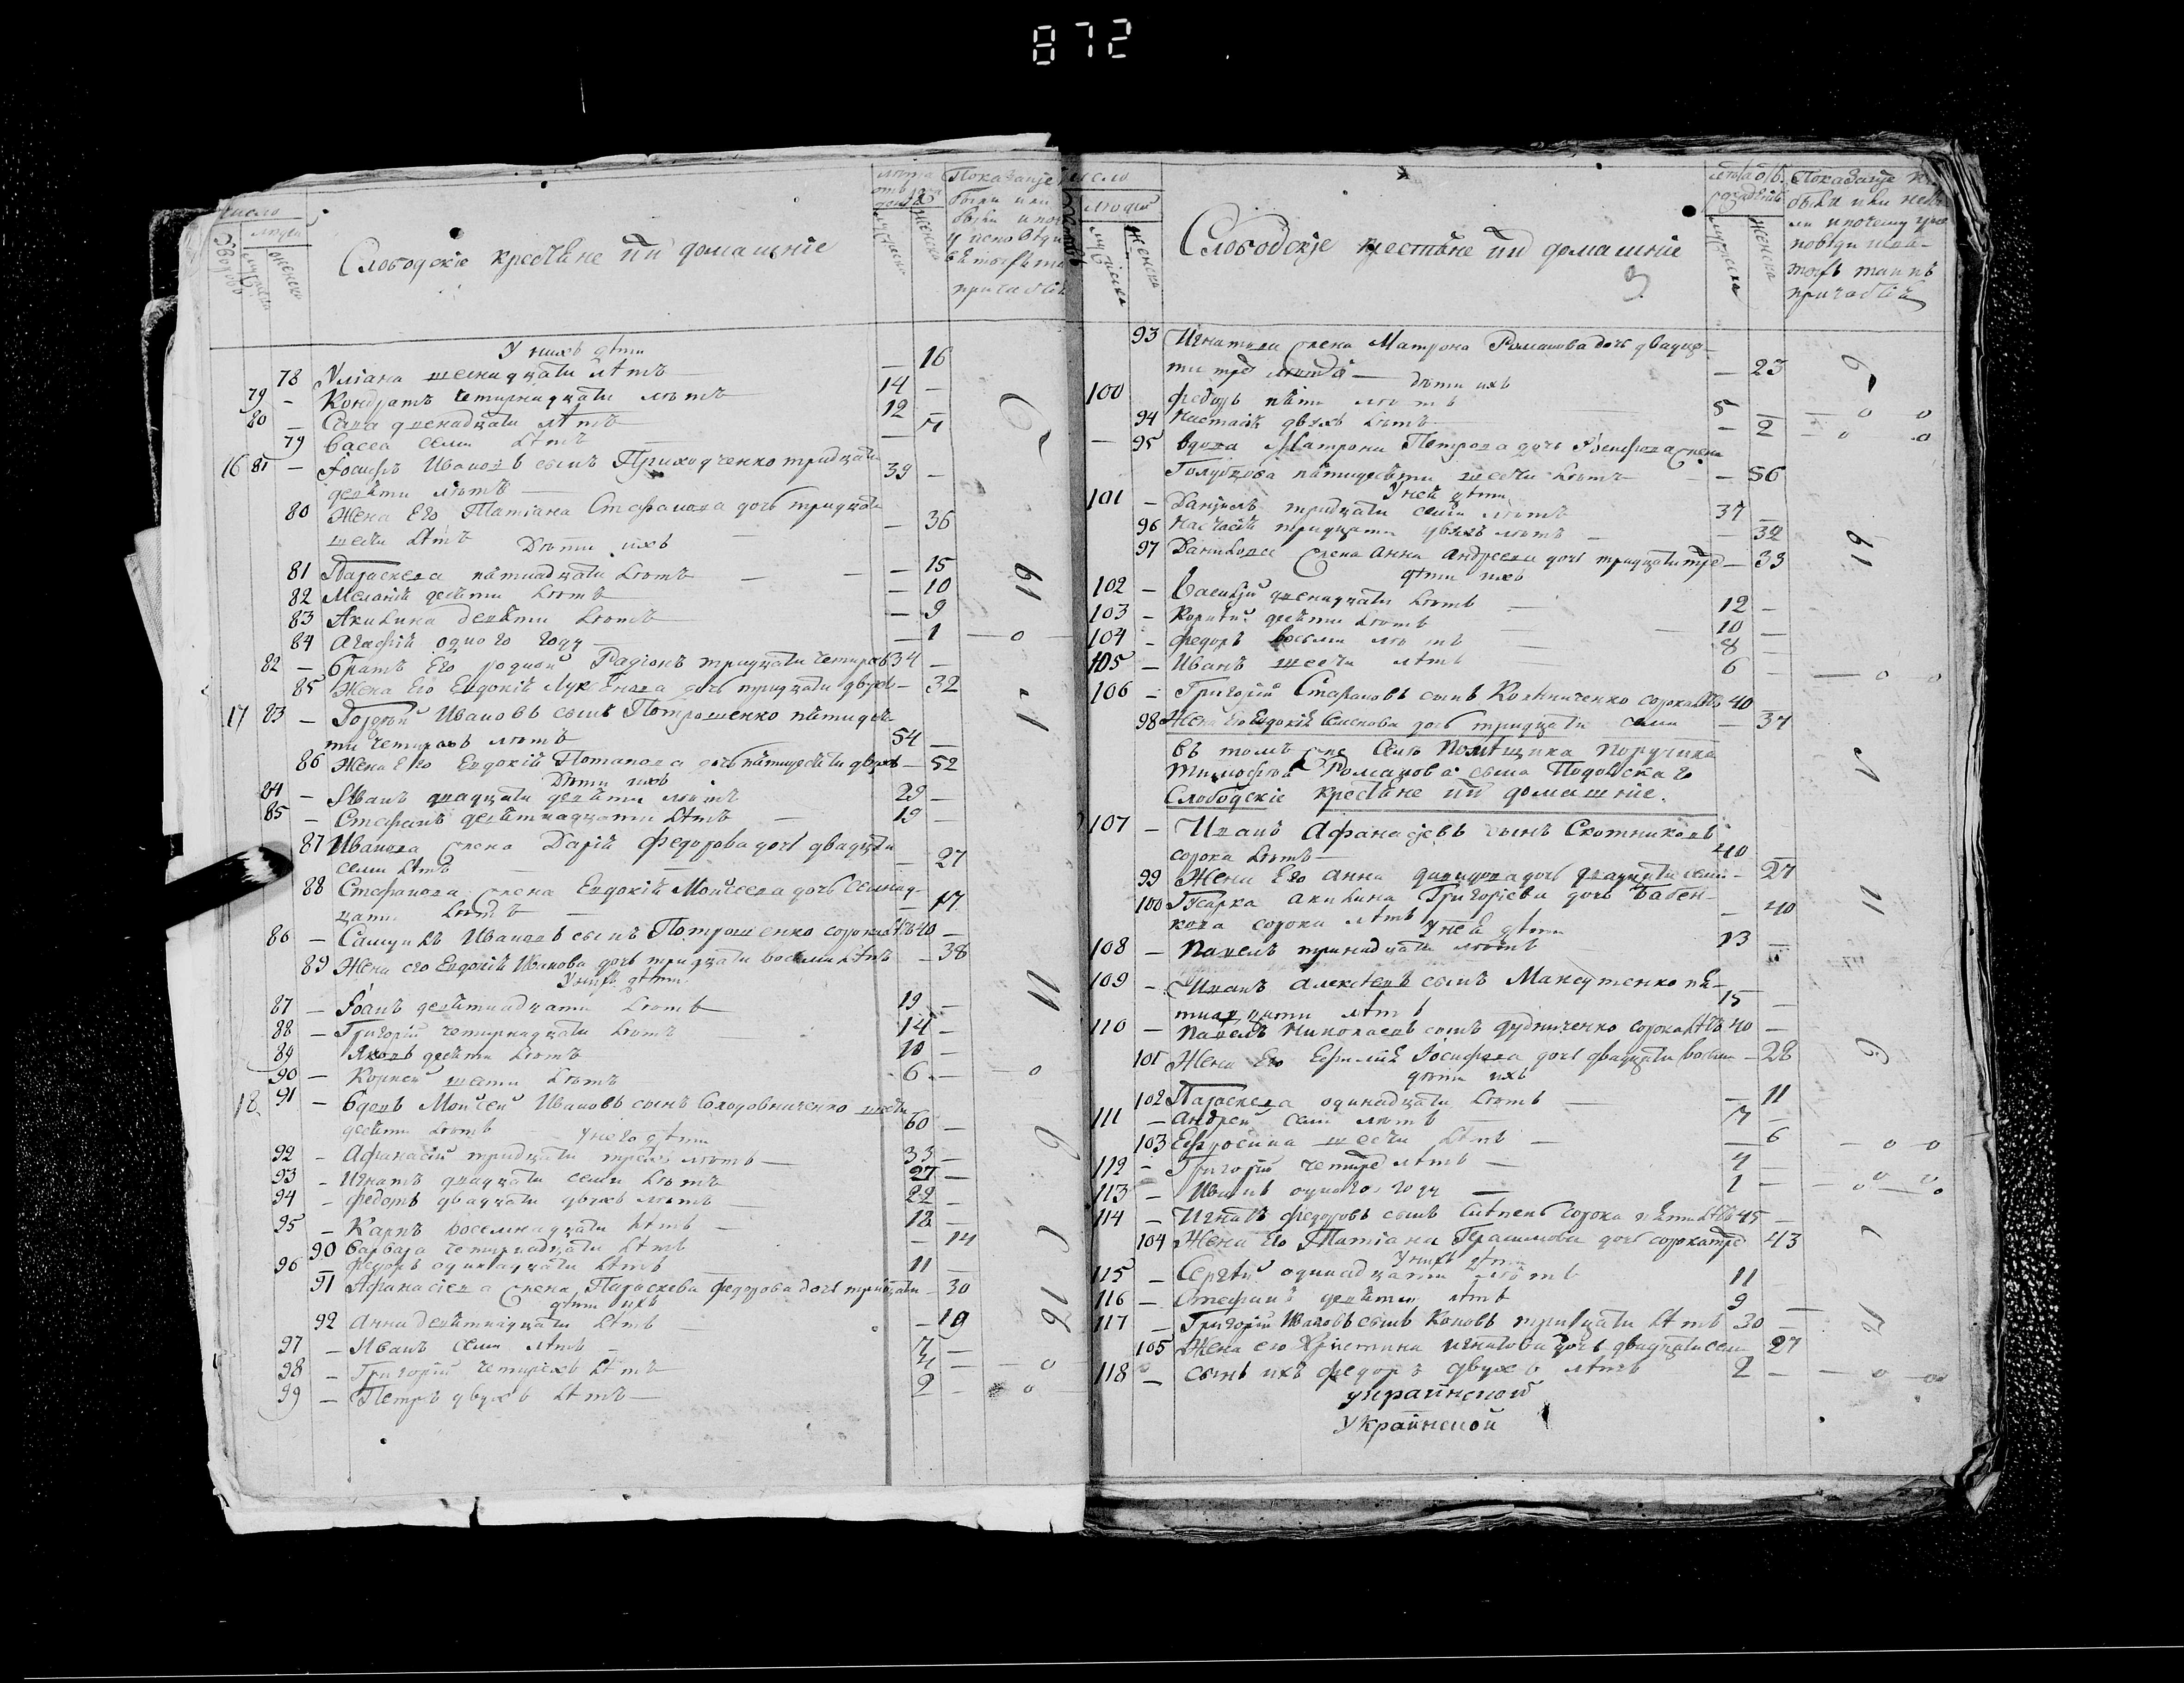 872
число
людей
Слободскіе крестѣяне ий домашніе
У нихъ дѣти
78 Уліана шеснадцати лѣтъ — 16
79 - Кондратъ четырнадцати лѣтъ 14 -
80 - Сава двенадцати лѣтъ 12 -
79 Васса семи лѣтъ — 7
16 81 - Іосифъ Ивановъ сынъ Приходченко тридцати
девяти лѣтъ 39 -
80 Жена Его Татіана Стефанова дочь тридцати
шести лѣтъ — 36
Дѣти ихъ
81 Параскева пятнадцати лѣтъ — 15
82 Меланія десяти лѣтъ — 10
83 Акилина девяти лѣтъ — 9
84 Агафія одного году — 1 — о
82 - братъ Его родной Радіонъ тридцати четырехъ 34 -
85 Жена Его Евдокія дочь тридцати двухъ — 32
17 83 - Гордѣй Ивановъ сынъ Потрошенко пятидеся-
ти четырехъ лѣтъ 54 -
86 Жена Его Евдокія Потапова дочь пятидесяти двухъ — 52
Дѣти ихъ
84 - Иванъ двадцати девяти лѣтъ 29 -
85 - Стефанъ девятнадцати лѣтъ 19 -
87 Иванова жена Дарія Федорова дочь двадцати
семи лѣтъ — 27
88 Стефанова жена Евдокія Моисеева дочь семнад-
цати лѣтъ — 17
86 - Самуилъ Ивановъ сынъ Потрошенко сорока лѣтъ 40 -
89 Жена его Евдокія Иванова дочь тридцати восьми лѣтъ — 38
У нихъ дѣти
87 - Іоанъ девятнадцати лѣтъ 19 -
88 - Григорій четырнадцати лѣтъ 14 -
89 Яковъ десяти лѣтъ 10 -
90 - Корней шести лѣтъ 6 - о
18 91 - Вдовъ Моисей Ивановъ сынъ шести
десяти лѣтъ 60 -
У него дѣти
92 - Афанасій тридцати трехъ лѣтъ 33 -
93 - Игнатъ двадцати семи лѣтъ 27 -
94 - Федотъ двадцати двухъ лѣтъ 22 -
95 - Карпъ восемнадцати лѣтъ 18 -
90 Варвара четырнадцати лѣтъ — 14
96 - Федоръ одинадцати лѣтъ 11 -
91 Афанасіева жена Параскева Федорова дочь тридцати — 30
дѣти ихъ
92 Анна девятнадцати лѣтъ — 19
97 - Иванъ семи лѣтъ 7 -
98 - Григорій четырехъ лѣтъ 4 - о
99 - Петръ двухъ лѣтъ 2 - о
Слободскіе крестѣяне ий домашніе
93 Игнатова жена Матрона Романова дочь двадца-
ти трехъ лѣтъ — 23
Дѣти ихъ
100 Федоръ пяти лѣтъ 5 - о о
94 Настасія двухъ лѣтъ — 2 - о о
95 Вдова Матрона Петрова дочь Іосифова жена
Голубцова пятидесяти шести лѣтъ — 56
У ней дѣти
101 - Даніилъ тридцати семи лѣтъ 37 -
96 Настасія тридцати двухъ лѣтъ — 32
97 Данилова жена Анна Андреева дочь тридцати трех — 33
дѣти ихъ
102 - Василій двенадцати лѣтъ 12 -
103 - десяти лѣтъ 10 -
104 - Федоръ восьми лѣтъ 8 -
105 - Иванъ шести лѣтъ 6 - о о
106 - Григорій Стефановъ сынъ сорока лѣтъ 40
98 Жена Его Евдокія дочь тридцати семи — 37
въ томъ же селѣ помѣщика поручика
Тимофея Романова сына Подовскаго
Слободскіе крестѣяне ий домашніе.
107 - Иванъ Афанасіевъ сынъ Скотниковъ
сорока лѣтъ 40
99 Жена Его Анна дочь двадцати семи — 27
100 Акилина Григоріева дочь Бабен-
кова сорока лѣтъ — 40
У ней дѣти
108 - Павелъ тринадцати лѣтъ 13 -
109 - Иванъ Алексѣевъ сынъ Максутенко пя-
тнадцати лѣтъ 15 -
110 - Павелъ Николаевъ сынъ Дудниченко сорока лѣтъ 40 -
101 Жена Его Ефимія Іосифова дочь двадцати восьми — 28
дѣти ихъ
102 Параскева одинадцати лѣтъ — 11
111 - Андрей семи лѣтъ 7 -
103 Ефросина шести лѣтъ — 6 - о о
112 - Григорій четыре лѣтъ 4 - о о
113 - Иванъ одного году 1 - о о
114 - Игнатъ Федоровъ сынъ сорока пяти лѣтъ 45 -
104 Жена Его Татіана Герасимова дочь сорока трех 43
У нихъ дѣти
115 - Сергѣй одинадцати лѣтъ 11
116 - Стефанъ девяти лѣтъ 9 -
117 - Григорій Ивановъ сынъ Коновъ тридцати лѣтъ 30 -
105 Жена его Христина Игнатова дочь двадцати семи 27
118 - сынъ ихъ Федоръ двухъ лѣтъ 2 - о о
украинской
Украинской